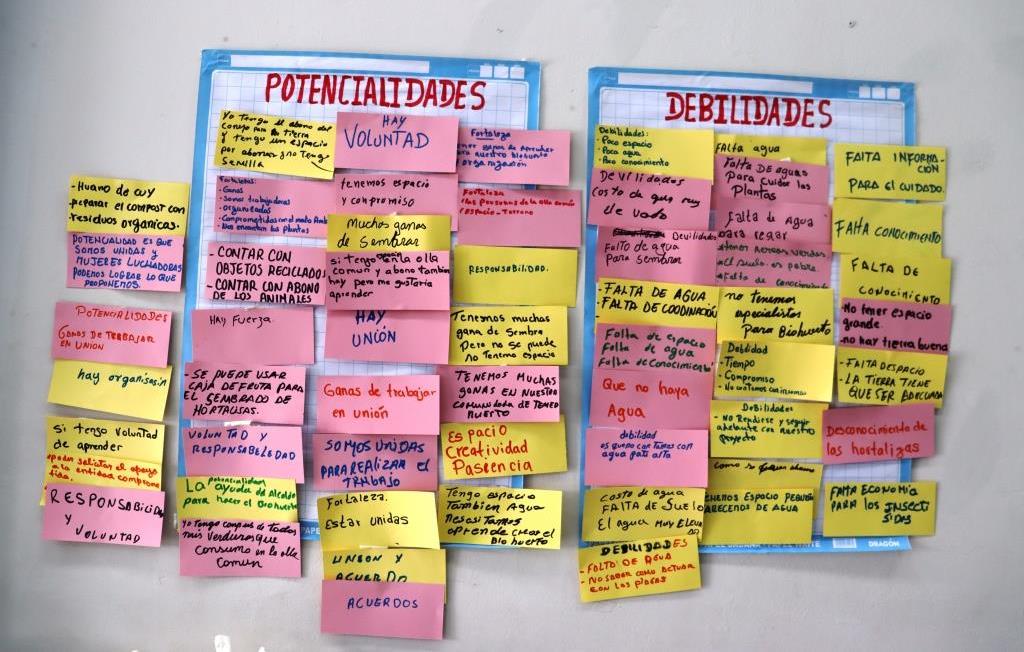 POTENCIALIDADES
Yo tengo el abono del
conejo para la tierra
y tengo un espacio
por abonar y no tengo
Semilla
HAY
VOLUNTAD
Fortaleza
para nuestro biohuerto
organización
- Huano de cuy
preparar el compost con
residuos organicos.
POTENCIALIDAD ES QUE
SOMOS UNIDAS Y
MUJERES LUCHADORAS
PODEMOS LOGRAR LO QUE
PROPONEMOS.
Fortalezas:
- Ganas
- Somos trabajadoras
- Organizadas
- Nos encantan las plantas
tenemos espacio
y compromiso
Fortaleza
las personas de la olla común
espacio - terreno
Muchas ganas
de Sembrar
- CONTAR CON
OBJETOS RECICLADOS
- CONTAR CON ABONO
DE LOS ANIMALES
si tengo en la olla
comun y abono tambien
hay pero me gustaria
aprender
RESPONSABILIDAD.
POTENCIALIDADES
GANAS DE TRABAJAR
EN UNION
HAY Fuerza.
HAY
UNIÓN
Tenemos muchas
gana de Sembra
Pero no se puede
no Tenemo espacio
hay organisasión
- SE PUEDE USAR
CAJA DE FRUTA PARA
EL SEMBRADO DE
HORTALISAS.
Ganas de trabajar
en unión
TENEMOS MUCHAS
GANAS EN NUESTRO
COMUNIDAD DE TENER
HUERTO
Si tengo Voluntad
de aprender
a la entidad
VOLUNTAD Y
RESPONSABELEDAD
SOMOS UNIDAS
PARA REALIZAR EL
TRABAJO
Espacio
Creatividad
Pasiencia
RESPONSABILIDAD
Y
VOLUNTAD
La potencialidad
ayuda de Alcalde
para hacer el Biohuerto
Fortaleza.
Estar unidas
Tengo espacio
Tambien Agua
nesasitamos
aprende crear el
Bio huerto
Yo Tengo
mis Verduras que
Consumo en la olla
Comun
UNION Y
ACUERDO
ACUERDOS
DEBILIDADES
Debilidades:
- Poco espacio
- Poco agua
- Poco conocimiento
Falta agua
FALTA INFORMA-
CIÓN
PARA EL CUIDADO.
Devilidades
Costo de agua muy
elevado
Falta DE aguas
Para Cuidar las
Plantas
Devilidades
Falto de agua
Para sembrar
Falta de Agua
para regar
FALTA CONOCIMIENTO
el suelo es pobre.
falta de conocimiento
FALTA DE
CONOCIMIENTO
- FALTA DE AGUA
- FALTA DE COODINACIÓN
no tenemos
especialistas
Para Biohuerto
No tener espacio
grande.
no hay tierra buena
Falta de espacio
Falta de agua
Falta de Conocimiento
Debilidad
- Tiempo
- Compromiso
- No contamos con insumos
- FALTA DESPACIO
- LA TIERRA TIENE
QUE SER
Que no haya
Agua
Debilidades
- No Rendirse y seguir
adelante con nuestro
proyecto
Desconocimiento de
las hortalizas
debilidad
es que no contamos con
agua
Costo de agua
FALTA DE Suelo
El agua MUY
TENEMOS ESPACIO PEQUEÑO
CARECENOS DE AGUA
FALTA ECONOMÍA
PARA LOS INSECTI
SIDAS
DEBILIDADES
- FALTO DE AGUA
- NO SABER COMO ACTUAR
CON LAS PLAGAS
DRAGÓN